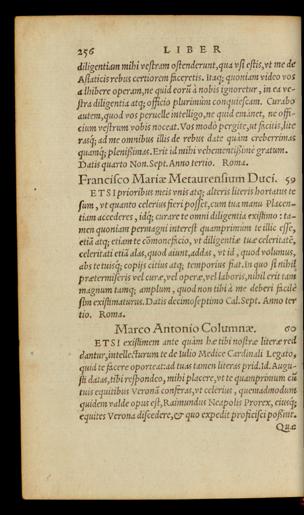 256 LIBER
diligentiam mihi vestram ostenderunt, qua vsi estis, vt me de
Asiaticis rebus certiorem faceretis. Itaq; quoniam video vos
adhibere operam, ne quid eorũ à nobis ignoretur, in ea ve-
stra diligentia atq; officio plurimùm conquiescam. Curabo
autem, quod vos peruelle intelligo, ne quid emanet, ne offi-
cium vestrum vobis noceat. Vos modò pergite, ut facitis, lite
rasq; ad me omnibus illis de rebus date quàm creberrimas
quamq; plenissimas. Erit id mihi vehementissimè gratum.
Datis quarto Non. Sept. Anno tertio. Roma.
Francisco Mariæ Metaurensium Duci. 59
ETSI prioribus meis vnis atq; alteris literis hortatus te
sum, vt quanto celerius fieri posset, cum tua manu Placen-
tiam accederes, idq; curare te omni diligentia existimo: ta-
men quoniam permagni interest quamprimum te illic esse,
etiã atq; etiam te cõmonefacio, vt diligentiæ tuæ celeritatẽ,
celeritati etiã alas, quod aiunt, addas, vt id, quod volumus,
abs te tuisq; copijs citius atq; temporius fiat. In quo si nihil
prætermiseris vel curæ, vel operæ, vel laboris, nihil erit tam
magnum tamq; amplum, quod non tibi à me deberi facilè
sim existimaturus. Datis decimoseptimo Cal. Sept. Anno ter
tio. Roma.
Marco Antonio Columnæ. 60
ETSI existimem ante quàm hæ tibi nostræ literæ red
dantur, intellecturum te de Iulio Medice Cardinali Legato,
quid te facere oporteat: ad tuas tamen literas prid. Id. Augu-
sti datas, tibi respondeo, mihi placere, vt te quamprimum cũ
tuis equitibus Veronã conferas, vt celerius, quemadmodum
quidem valde opus est, Raimundus Neapolis Prorex, eiusq;
equites Verona discedere, & quo expedit proficisci possint.
Quæ